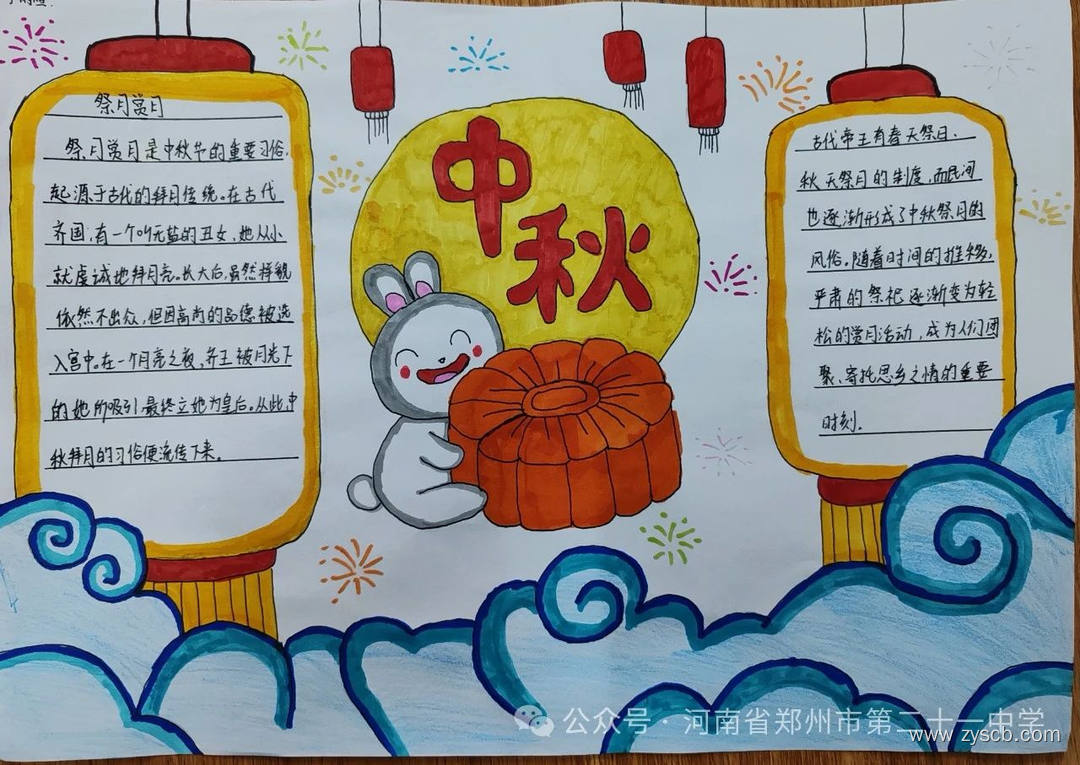 祭月赏月
祭月赏月是中秋节的重要习俗,
起源于古代的拜月传统。在古代
齐国,有一个叫无盐的丑女,她从小
就虔诚地拜月亮。长大后,虽然样貌
依然不出众,但因高尚的品德被选
入宫中。在一个月亮之夜,齐王被月光下
的她所吸引最终立她为皇后。从此,中
秋拜月的习俗便流传下来。
中
秋
古代帝王有春天祭日、
秋天祭月的制度,而民间
也逐渐形成了中秋祭月的
风俗。随着时间的推移,
严肃的祭祀逐渐变为轻
松的赏月活动,成为人们团
聚、寄托思乡之情的重要
时刻。
公众号·河南省郑州市第二十一中学
www.zyscb.com